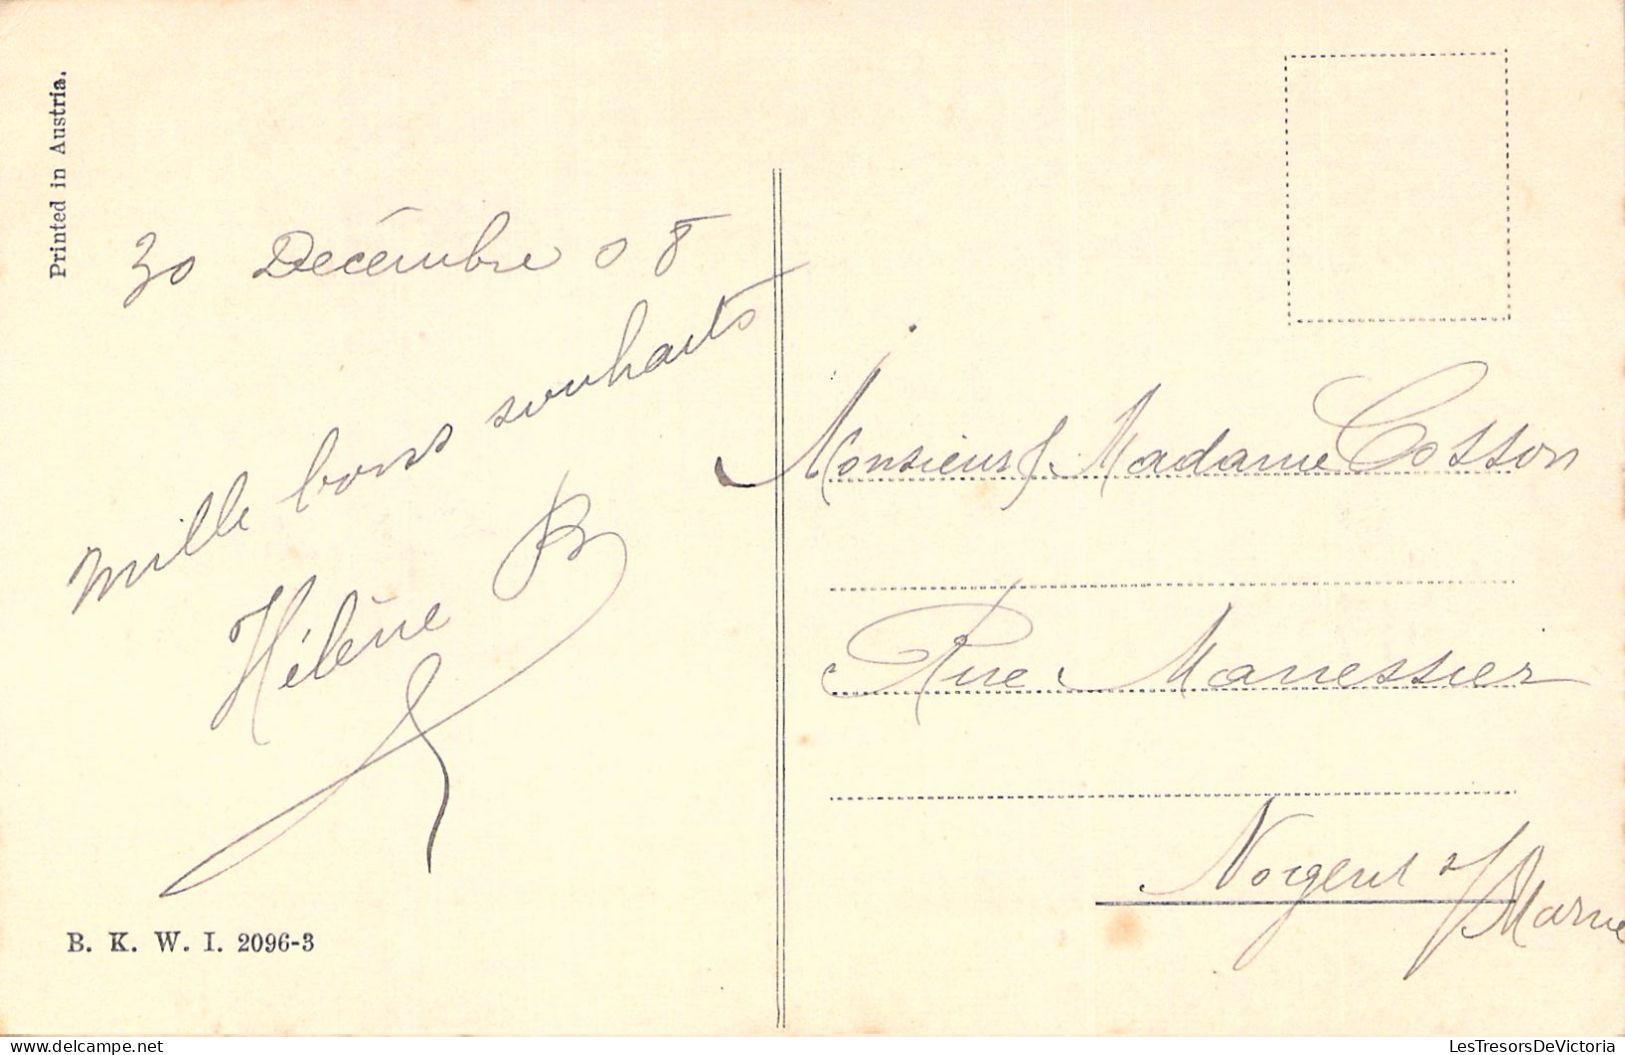 Printed in Austria.
30 Decémbre 08
Mille bons souhaits
Hélène B
B. K. W. I. 2096-3
Monsieur & Madame Cosson
Rue Manessier
Nogent s/Marne
LesTresorsDeVictoria
delcampe.net